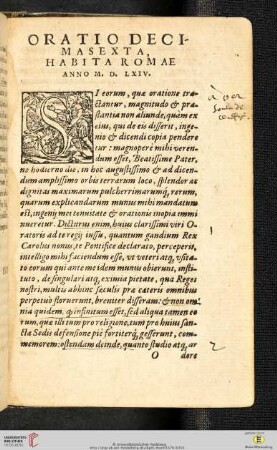 ORATIO DECI-
MASEXTA,
HABITA ROMAE
ANNO M. D. LXIV.
SI eorum, quæ oratione tra-
ctantur, magnitudo & præ-
stantia non aliunde, quam ex
eius, qui de eis disserit, inge-
nio & dicendi copia pendere
tur: magnopere mihi veren-
dum esset, Beatissime Pater,
ne hodierno die, in hoc augustissimo & ad dicen-
dum amplissimo orbis terrarum loco, splendor ac
dignitas maximarum pulcherrimarumq́; rerum,
quarum explicandarum munus mihi mandatum
est, ingenij mei tenuitate & orationis inopia immi
nueretur. Dicturus enim, huius clarissimi viri O-
ratoris ad te regij iussu, quantum gaudium Rex
Carolus nonus, te Pontifice declarato, perceperit,
intelligo mihi faciendum esse, vt veteri atq; vsita-
to eorum qui ante me idem munus obierunt, insti-
tuto, de singulari atq; eximia pietate, qua Reges
nostri, multis abhinc sæculis præ cæteris omnibus
perpetuò floruerunt, breuiter disseram: & non om
nia quidem, q; infinitum esset, sed aliqua tamen eo
rum, quæ illi tum pro religione, tum pro huius san-
ctæ Sedis defensione piè fortiterq́; gesserunt, com-
memorem: ostendam deinde, quanto studio atq; ar
O dore
2